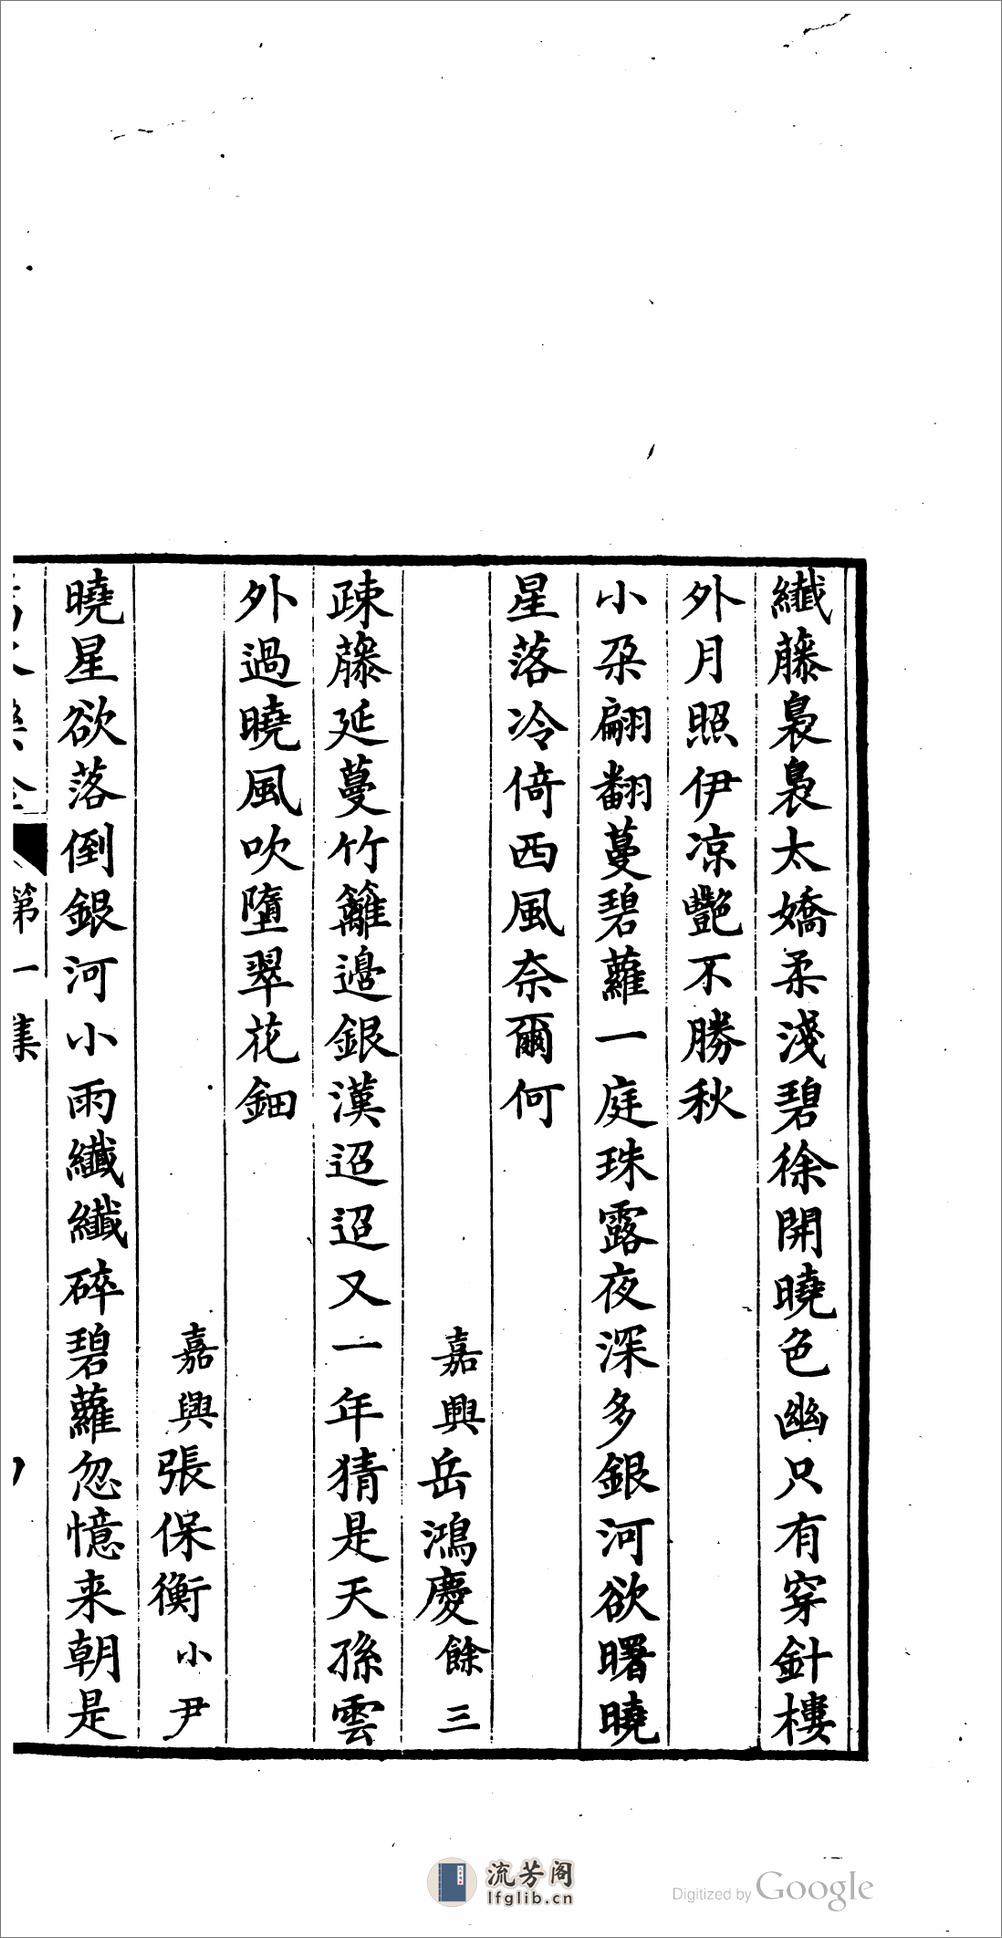 纖藤裊裊太嬌柔淺碧徐開曉色幽只有穿針樓
外月照伊凉艷不勝秋
小朶翩翻蔓碧蘿一庭珠露夜深多銀河欲曙曉
星落冷倚西風奈爾何
嘉興岳鴻慶餘三
疎藤延蔓竹籬邊銀漢迢迢又一年猜是天孫雲
外過曉風吹墮翠花鈿
嘉興張保衡小尹
曉星欲落倒銀河小雨纖纖碎碧蘿忽憶来朝是
第一集
流芳阁
lfglib.cn
Digitized by Google